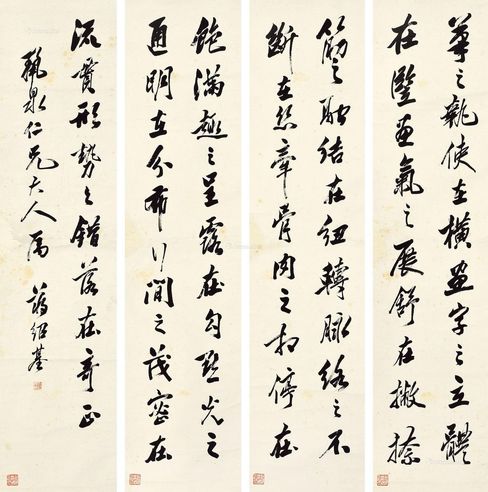 筆之執使在橫畫字之立體
在豎畫氣之展舒在撇捺
筋之融結在紐轉脉絡之不
斷在絲牽骨肉之停在
飽滿趣之呈露在勾點光之
通明在分布行間之茂密在
流貫形勢之錯落在奇正
泉仁兄大人屬 蔣紹基